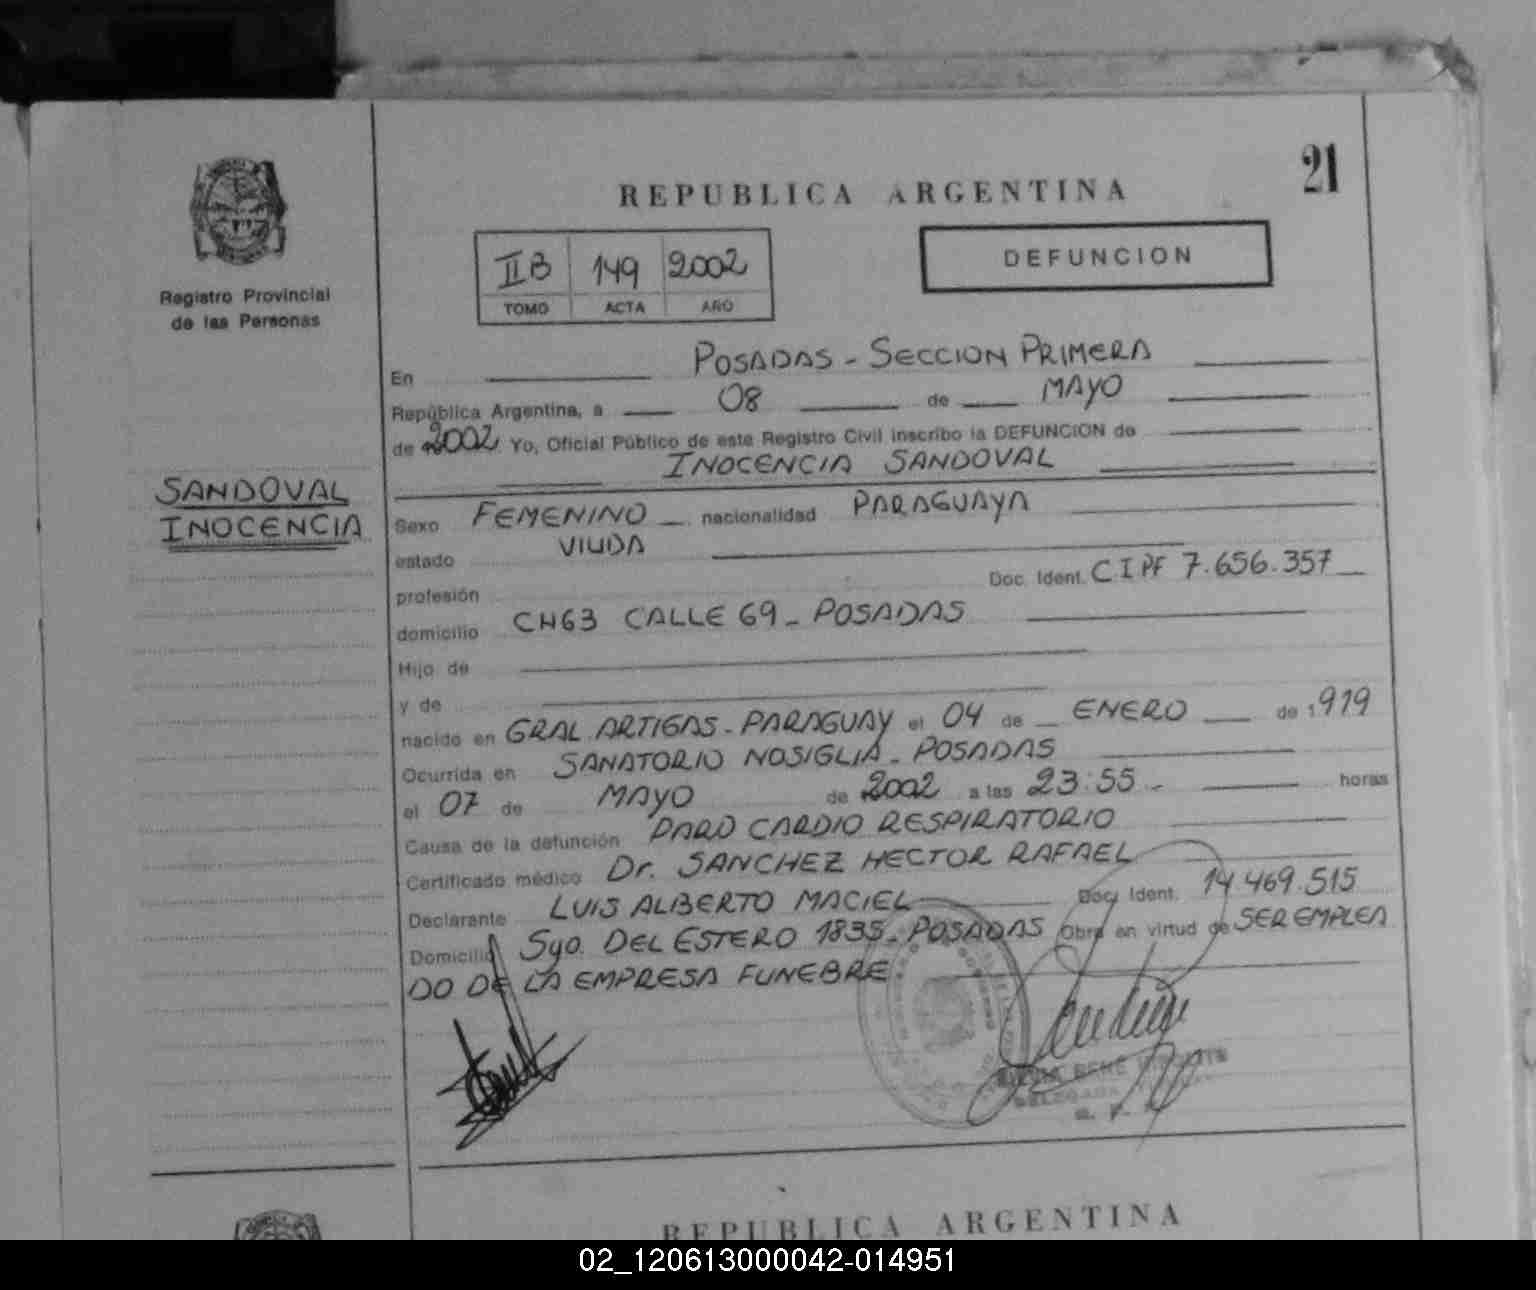 REPUBLICA ARGENTINA
21
Registro Provincial
de las Personas
IIB 149 2002
TOMO ACTA AÑO
DEFUNCION
En POSADAS - SECCION PRIMERA
República Argentina, a 08 de MAYO
de 2002 Yo, Oficial Público de este Registro Civil inscribo la DEFUNCION de
INOCENCIA SANDOVAL
SANDOVAL
INOCENCIA
Sexo FEMENINO nacionalidad PARAGUAYA
estado VIUDA
profesión Doc. Ident. C.I PF 7.656.357
domicilio CH63 CALLE 69 - POSADAS
Hijo de
y de
nacido en GRAL ARTIGAS - PARAGUAY el 04 de ENERO de 1919
Ocurrida en SANATORIO NOSIGLIA - POSADAS
el 07 de MAYO de 2002 a las 23:55 horas
Causa de la defunción PARO CARDIO RESPIRATORIO
Certificado médico Dr. SANCHEZ HECTOR RAFAEL
Declarante LUIS ALBERTO MACIEL Doc. Ident. 14.469.515
Domicilio Sgo. DEL ESTERO 1835 - POSADAS Obra en virtud de SER EMPLEA
DO DE LA EMPRESA FUNEBRE
REPUBLICA ARGENTINA
02_120613000042-014951